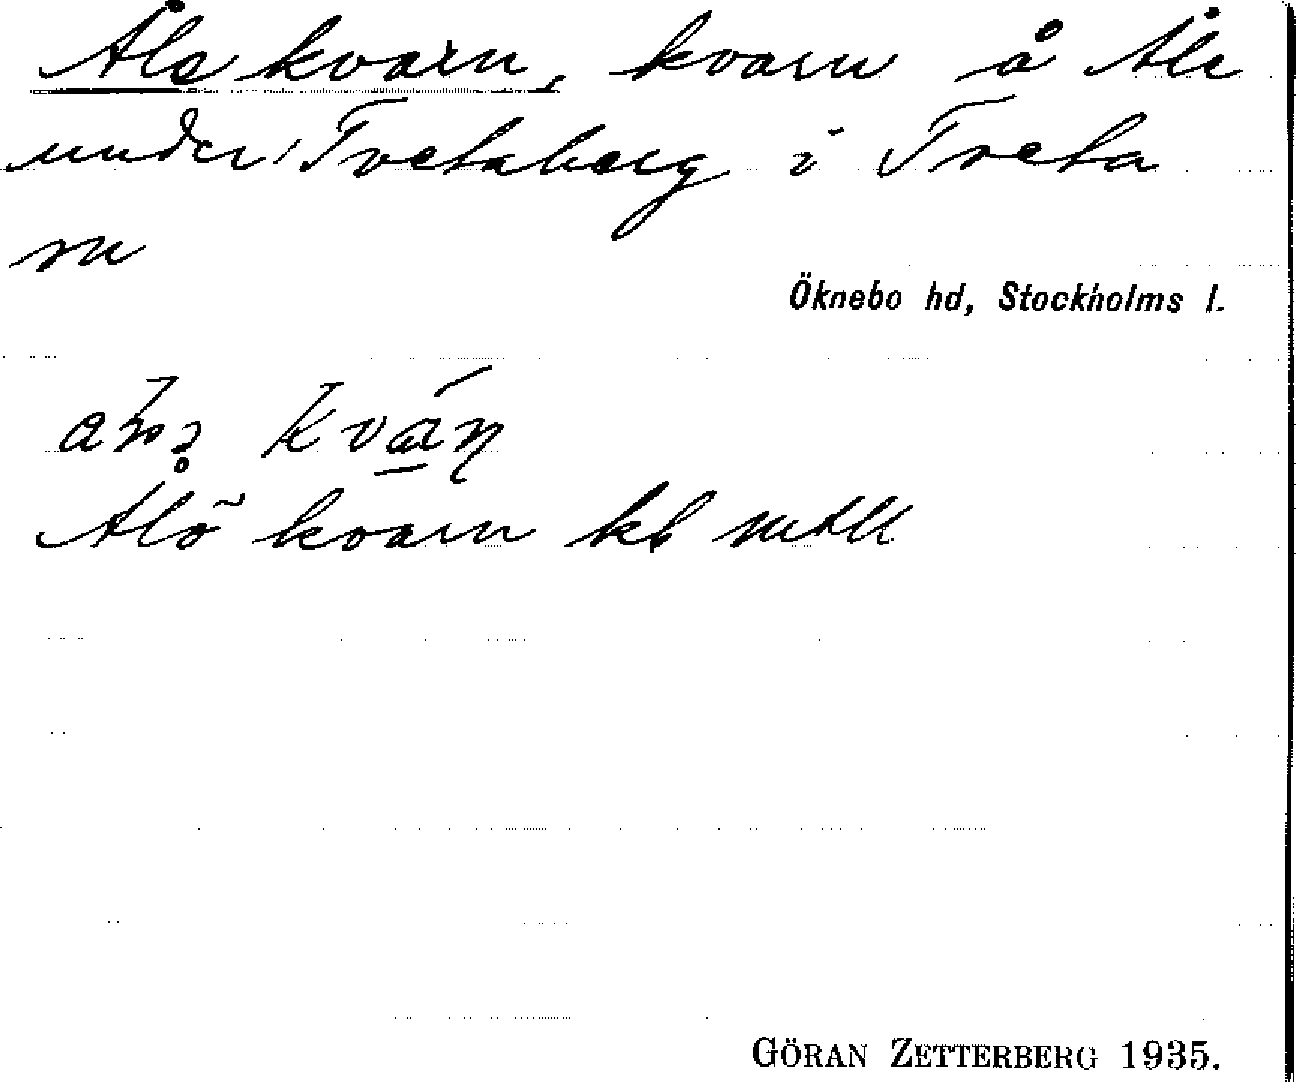 Åle kvarn, kvarn å Åle
under Tvetaberg i Tveta
sn
Öknebo hd, Stockholms l.
kvarn kb
GÖRAN ZETTERBERG 1935.